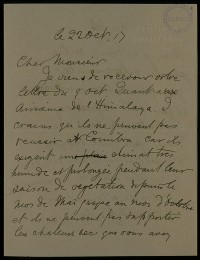 le 22 Oct. 17
Cher Monsieur
Je viens de recevoir votre
lettre du 9 oct. Quant aux
de l'Himalaya, I
crains qu'ils ne peuvent pas
reussir at Coimbra, car ils
exigent climat très
humide et prolongée pendant leur
saison de vegetation depuis le
mois de Mai jusque au mois d'Octobre
et ils ne peuvent pas supporter
les chaleurs sec que vous avez